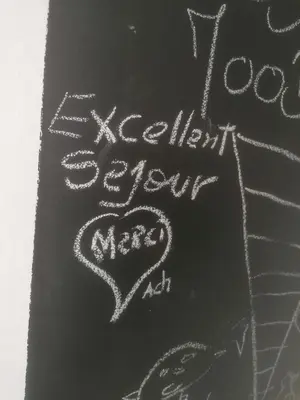 Excellent
Sejour
Merci
Ach